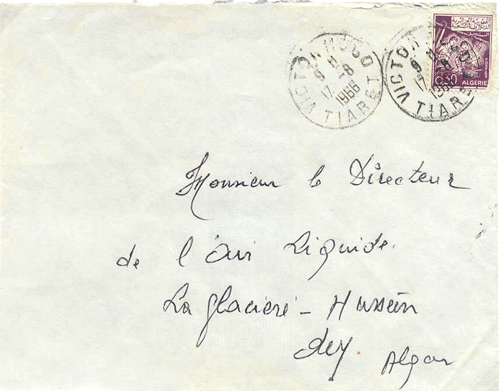 VICTOR HUGO
8 H
17 -8
1966
TIARET
VICTOR HUGO
8 H
17 -8
1966
TIARET
0,30
ALGERIE
Monsieur le Directeur
de l'Air Liquide
La glacière - Hussein
dey Alger